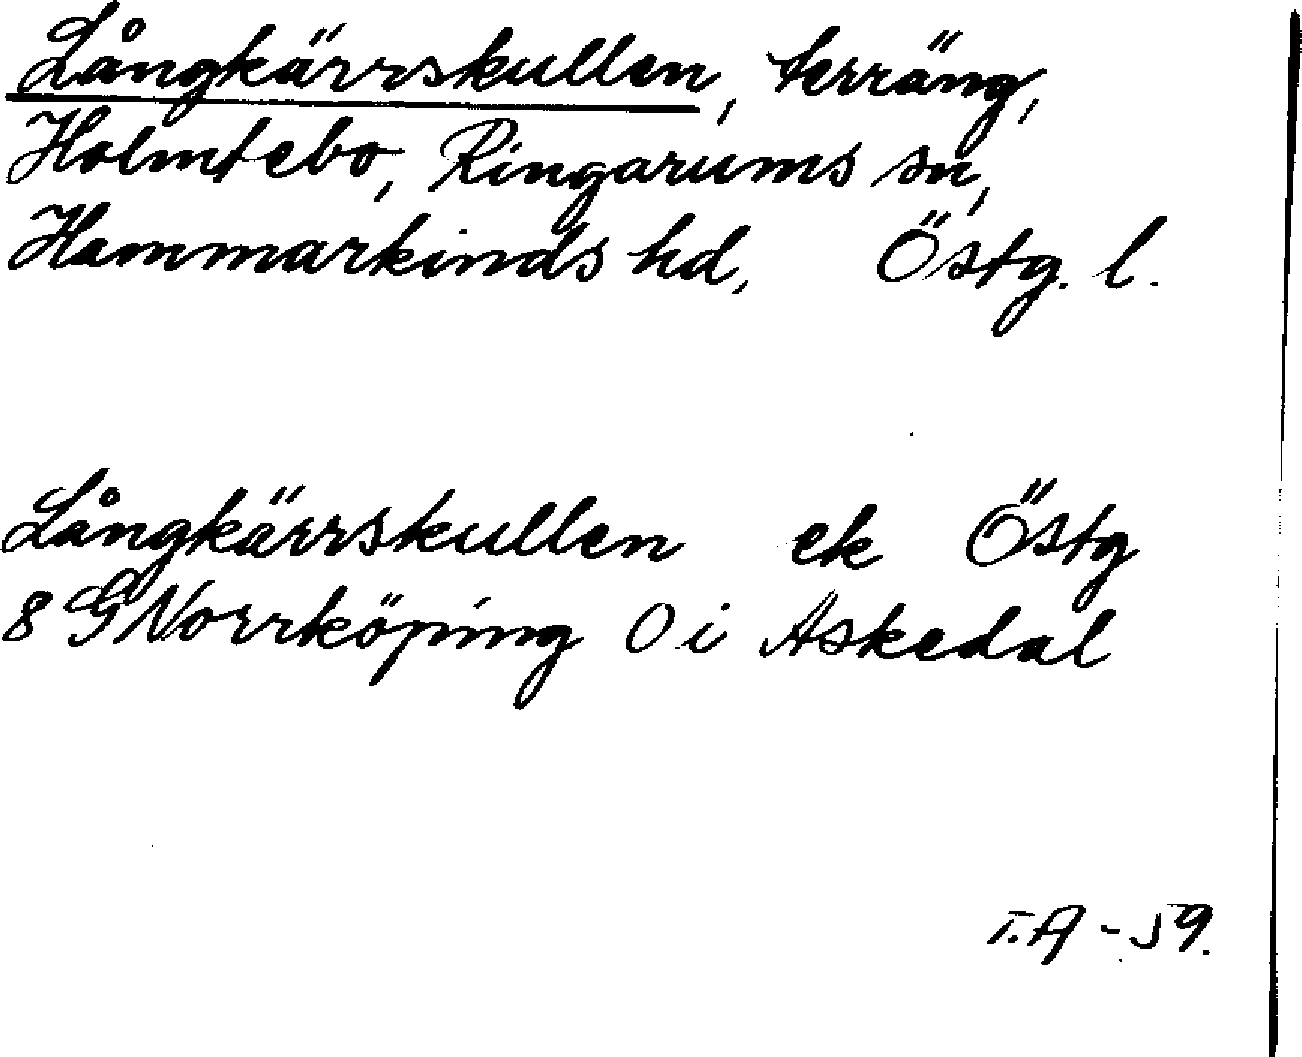 Långkärrskullen, terräng,
Holmtebo, Ringarums sn,
Hammarkinds hd, Östg. l.
Långkärrskullen ek Östg
8 G Norrköping O i Åskedal
T.A - 59.